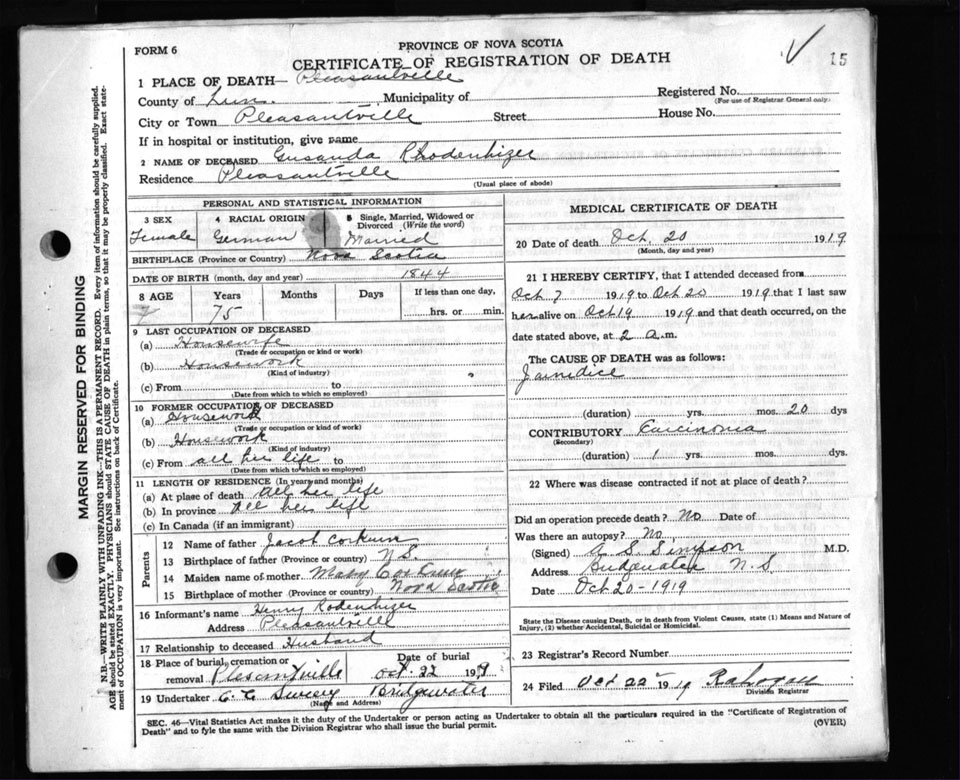 FORM 6
PROVINCE OF NOVA SCOTIA
CERTIFICATE OF REGISTRATION OF DEATH
15
1 PLACE OF DEATH— Pleasantville
County of Lun. Municipality of Registered No.
(For use of Registrar General only.)
City or Town Pleasantville Street House No.
If in hospital or institution, give name
2 NAME OF DECEASED Gusanda Rhodenhizer
Residence Pleasantville
(Usual place of abode)
PERSONAL AND STATISTICAL INFORMATION
3 SEX 4 RACIAL ORIGIN 5 Single, Married, Widowed or Divorced (Write the word)
Female German Married
BIRTHPLACE (Province or Country) Nova Scotia
DATE OF BIRTH (month, day and year) 1844
8 AGE Years Months Days If less than one day,
75 hrs. or min.
9 LAST OCCUPATION OF DECEASED
(a) Housewife
(Trade or occupation or kind or work)
(b) Housework
(Kind of industry)
(c) From to
(Date from which to which so employed)
10 FORMER OCCUPATION OF DECEASED
(a) Housework
(Trade or occupation or kind of work)
(b) Housework
(Kind of industry)
(c) From all her life to
(Date from which to which so employed)
11 LENGTH OF RESIDENCE (In years and months)
(a) At place of death all her life
(b) In province all her life
(c) In Canada (if an immigrant)
Parents
12 Name of father Jacob Corkum
13 Birthplace of father (Province or country) N.S.
14 Maiden name of mother Mary Corkum
15 Birthplace of mother (Province or country) Nova Scotia
16 Informant's name Henry Rodenhizer
Address Pleasantville
17 Relationship to deceased Husband
18 Place of burial, cremation or removal Plesentville Date of burial Oct. 22 1919
19 Undertaker Bridgewater
(Name and Address)
MEDICAL CERTIFICATE OF DEATH
20 Date of death Oct. 20 1919
(Month, day and year)
21 I HEREBY CERTIFY, that I attended deceased from
Oct 7 1919 to Oct 20 1919 that I last saw
her alive on Oct 19 1919 and that death occurred, on
date stated above, at 2 a.m.
The CAUSE OF DEATH was as follows:
Jaundice
(duration) yrs. mos. 20 dys
CONTRIBUTORY Carcinoma
(Secondary)
(duration) 1 yrs. mos. dys.
22 Where was disease contracted if not at place of death?
Did an operation precede death? No Date of
Was there an autopsy? No.
(Signed) A. S. Simpson M.D.
Address Bridgewater N.S
Date Oct 20-1919
State the Disease causing Death, or in death from Violent Causes, state (1) Means and Nature of
Injury, (2) whether Accidental, Suicidal or Homicidal.
23 Registrar's Record Number
24 Filed Oct 22 1919
Division Registrar
SEC. 46—Vital Statistics Act makes it the duty of the Undertaker or person acting as Undertaker to obtain all the particulars required in the "Certificate of Registration of
Death" and to fyle the same with the Division Registrar who shall issue the burial permit.
(OVER)
MARGIN RESERVED FOR BINDING
N.B.—WRITE PLAINLY WITH UNFADING INK—THIS IS A PERMANENT RECORD. Every item of information should be carefully supplied.
AGE should be stated EXACTLY. PHYSICIANS should STATE CAUSE OF DEATH in plain terms, so that it may be properly classified. Exact state-
ment of OCCUPATION is very important. See instructions on back of Certificate.